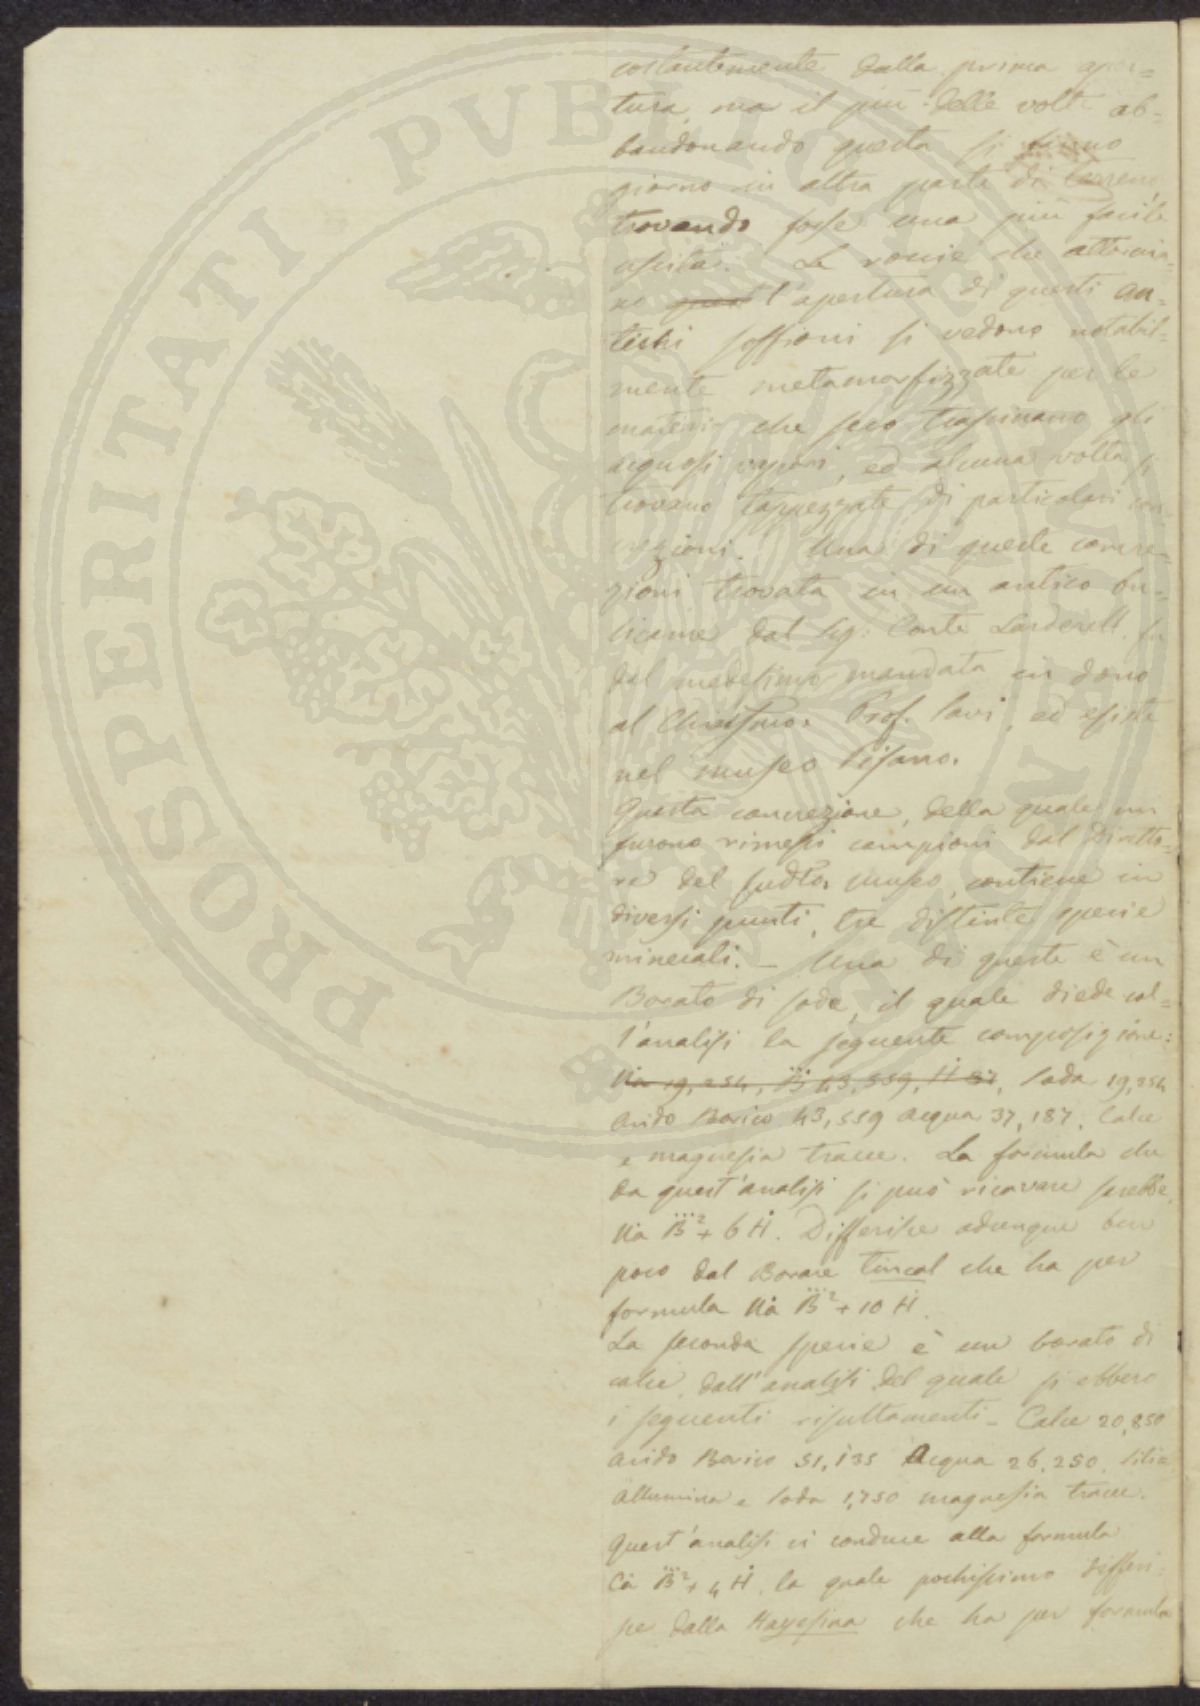 costantemente dalla prima aper=
tura, ma il più delle volte ab=
bandonando questa si fanno
giorno in altra parte di terreno,
trovando forse una più facile
uscita. Le roccie che attornia=
no ques l'apertura di questi an=
tichi soffioni si vedono notabil=
mente metamorfizzate per le
materie che seco trascinano gli
acquosi vapori, ed alcuna volta si
trovano tappezzate di particolari con
crezioni. Una di queste concre=
zioni trovata in un antico bu=
licame dal Sig: Conte Larderell fu
dal medesimo mandata in dono
al Chiarissmo. Prof. Savi, ed esiste
nel museo Pisano.
Questa concrezione, della quale mi
furono rimessi campioni dal Diretto=
re del sudto. museo, contiene in
diversi punti, tre distinte specie
minerali. _ Una di queste è un
Borato di soda, il quale diede col=
l'analisi la seguente composizione:
Na 19,254, B 43,559, H 37, Soda 19,254
Acido Borico 43,559 Acqua 37,187, Calce
e magnesia tracce. La formula che
da quest'analisi si può ricavare sarebbe
Na B² + 6 H. Differisce adunque ben
poco dal Borace Tincal che ha per
formula Na B² + 10 H.
La seconda specie è un borato di
calce, dall'analisi del quale si ebbero
i seguenti risultamenti _ Calce 20,850
Acido Borico 51,135 Acqua 26,250, Silice
Allumina e Soda 1,750 magnesia tracce.
Quest'analisi ci conduce alla formula
Ca B² + 4 H, la quale pochissimo differi=
sce dalla Hayesina che ha per formula
PROSPERITATI PUBLICAE